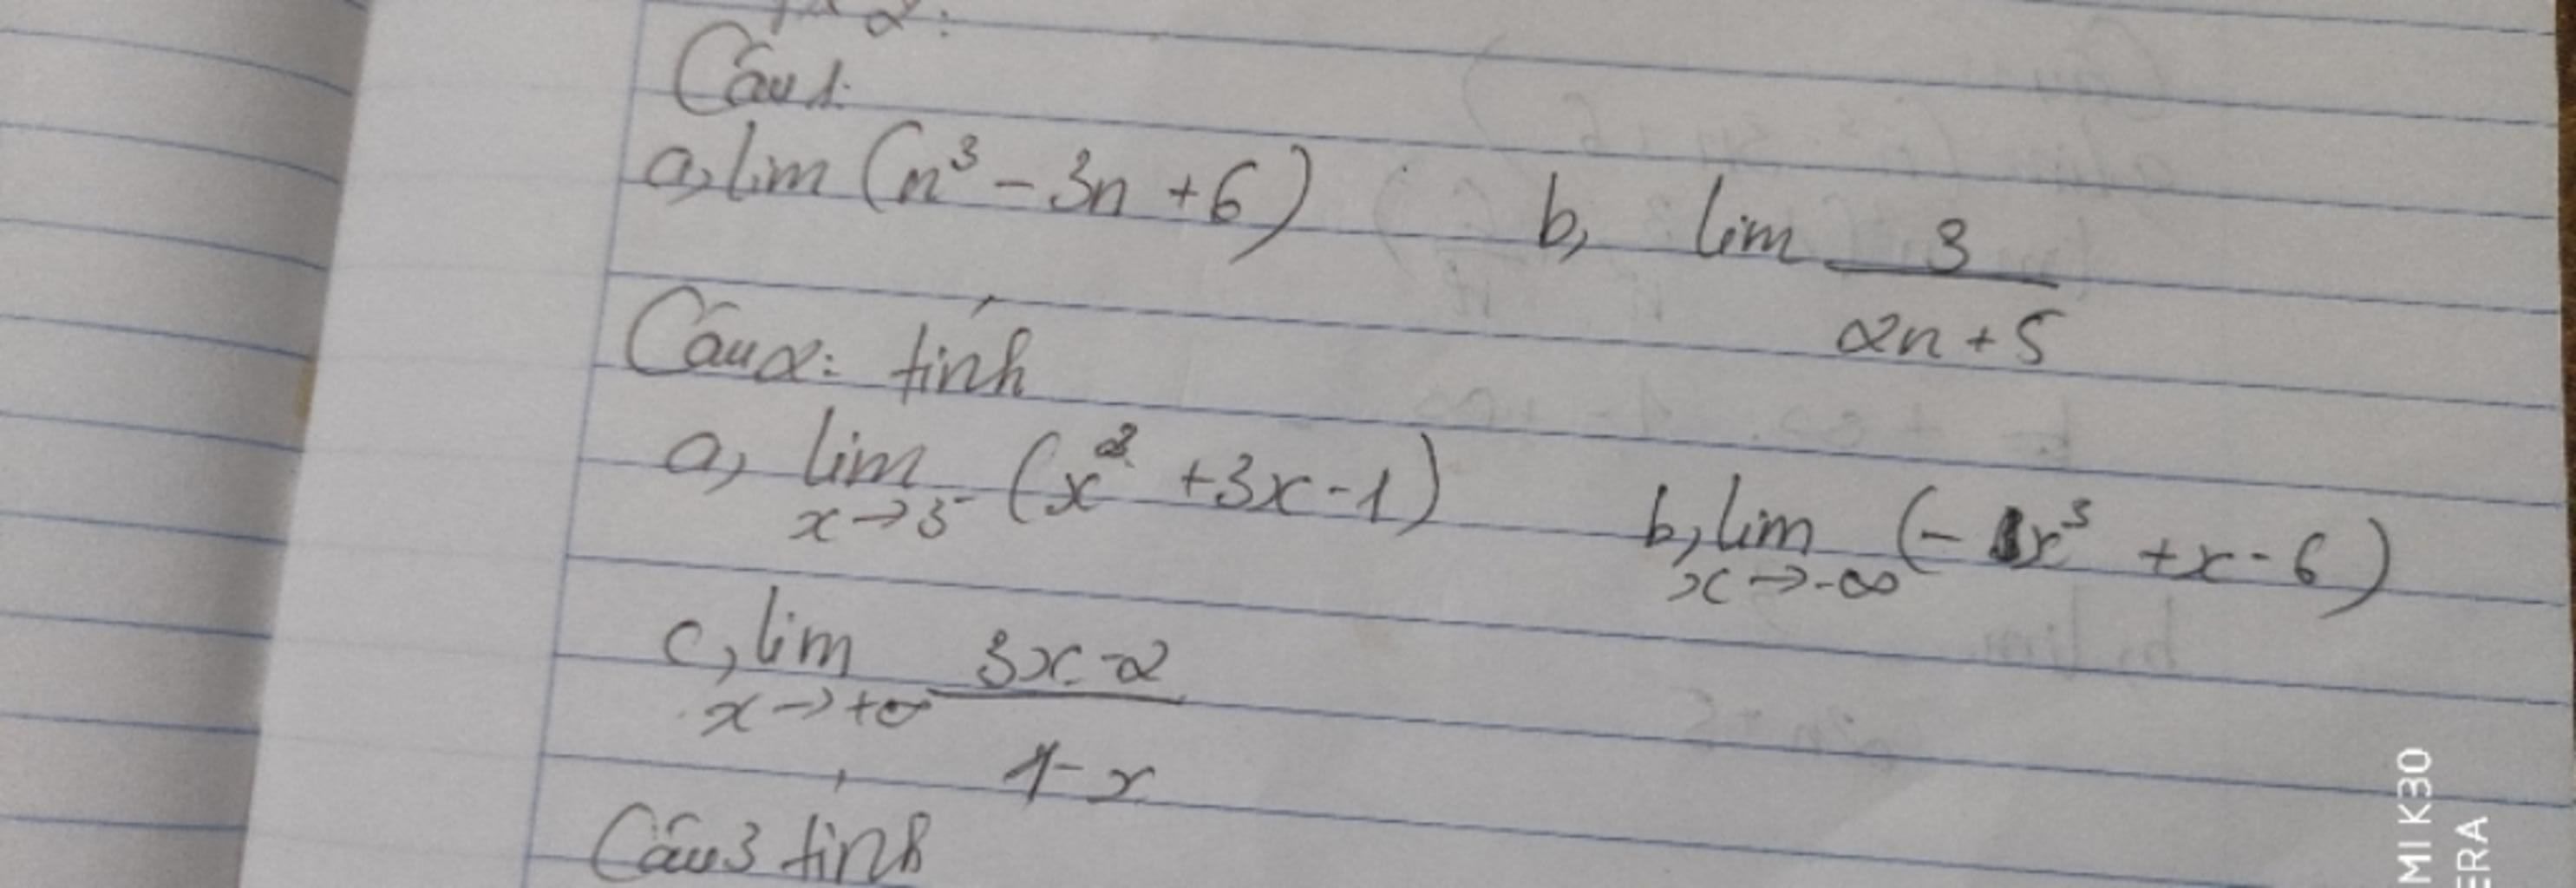 Câu 1:
a, lim (n³ - 3n + 6) b, lim 3
2n + 5
Câu 2: tính
a, lim (x² + 3x - 1) b, lim (- x³ + x - 6)
x → 3⁻ x → -∞
c, lim 3x - 2
x → +∞
1 - x
Câu 3 tính
MI K30
ERA